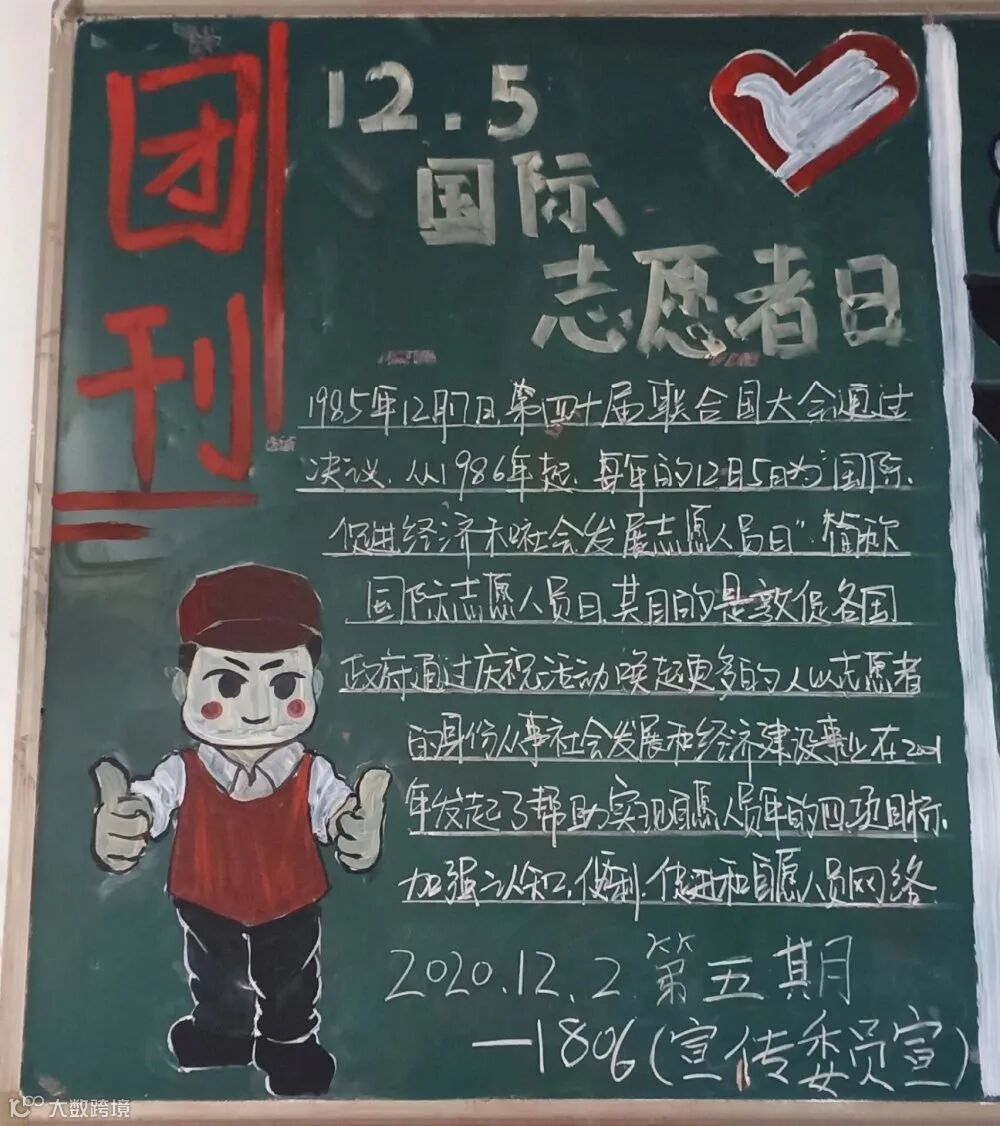 团刊
12.5
国际
志愿者日
1985年12月17日,第四十届联合国大会通过
决议,从1986年起,每年的12月5日为"国际
促进经济和社会发展志愿人员日"简称
国际志愿人员日,其目的是敦促各国
政府通过庆祝活动唤起更多的人以志愿者
的身份从事社会发展和经济建设事业在2001
年发起了帮助实现自愿人员年的四项目标,
加强认知,便利,促进和自愿人员网络
2020.12.2 第五期月
—1806(宣传委员宣)
大数跨境